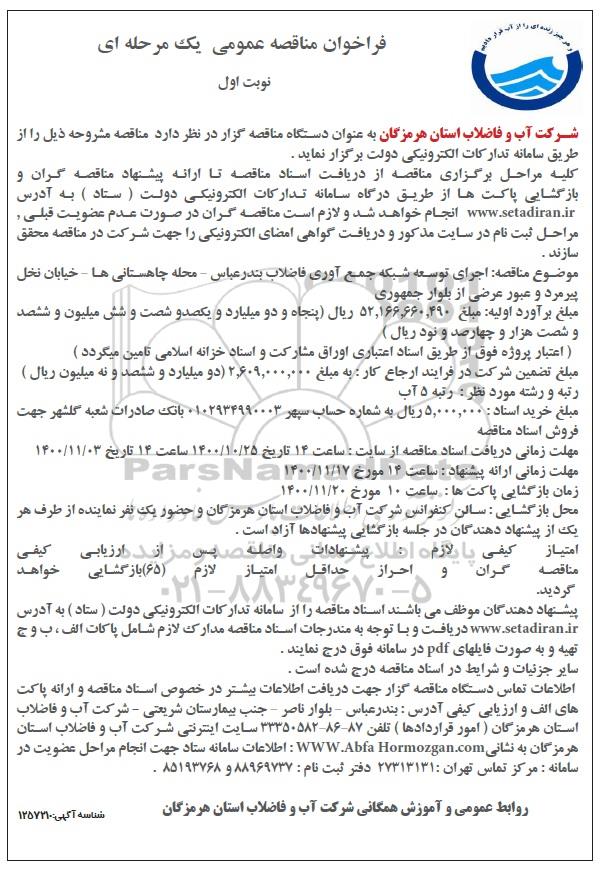 و هر چیز زنده ای را از آب قرار دادیم
فراخوان مناقصه عمومی یک مرحله ای
نوبت اول
شرکت آب و فاضلاب استان هرمزگان به عنوان دستگاه مناقصه گزار در نظر دارد مناقصه مشروحه ذیل را از
طریق سامانه تدارکات الکترونیکی دولت برگزار نماید .
کلیه مراحل برگزاری مناقصه از دریافت اسناد مناقصه تا ارائه پیشنهاد مناقصه گران و
بازگشایی پاکت ها از طریق درگاه سامانه تدارکات الکترونیکی دولت ( ستاد ) به آدرس
www.setadiran.ir انجام خواهد شد و لازم است مناقصه گران در صورت عدم عضویت قبلی ,
مراحل ثبت نام در سایت مذکور و دریافت گواهی امضای الکترونیکی را جهت شرکت در مناقصه محقق
سازند .
موضوع مناقصه: اجرای توسعه شبکه جمع آوری فاضلاب بندرعباس – محله چاهستانی ها – خیابان نخل
پیرمرد و عبور عرضی از بلوار جمهوری
مبلغ برآورد اولیه: مبلغ ۵۲,۱۶۶,۶۶۰,۴۹۰ ریال (پنجاه و دو میلیارد و یکصدو شصت و شش میلیون و ششصد
و شصت هزار و چهارصد و نود ریال )
( اعتبار پروژه فوق از طریق اسناد اعتباری اوراق مشارکت و اسناد خزانه اسلامی تامین میگردد )
مبلغ تضمین شرکت در فرایند ارجاع کار : به مبلغ ۲,۶۰۹,۰۰۰,۰۰۰ (دو میلیارد و ششصد و نه میلیون ریال )
رتبه و رشته مورد نظر : رتبه ۵ آب
مبلغ خرید اسناد : ۵,۰۰۰,۰۰۰ ریال به شماره حساب سپهر ۰۱۰۲۹۳۴۹۹۰۰۰۳ بانک صادرات شعبه گلشهر جهت
فروش اسناد مناقصه
مهلت زمانی دریافت اسناد مناقصه از سایت : ساعت ۱۴ تاریخ ۱۴۰۰/۱۰/۲۵ ساعت ۱۴ تاریخ ۱۴۰۰/۱۱/۰۳
مهلت زمانی ارائه پیشنهاد : ساعت ۱۴ مورخ ۱۴۰۰/۱۱/۱۷
زمان بازگشایی پاکت ها : ساعت ۱۰ مورخ ۱۴۰۰/۱۱/۲۰
محل بازگشایی : سالن کنفرانس شرکت آب و فاضلاب استان هرمزگان و حضور یک نفر نماینده از طرف هر
یک از پیشنهاد دهندگان در جلسه بازگشایی پیشنهادها آزاد است .
امتیاز کیفی لازم : پیشنهادات واصله پس از ارزیابی کیفی
مناقصه گران و احراز حداقل امتیاز لازم (۶۵)بازگشایی خواهد
گردید.
پیشنهاد دهندگان موظف می باشند اسناد مناقصه را از سامانه تدارکات الکترونیکی دولت ( ستاد ) به آدرس
www.setadiran.ir دریافت و با توجه به مندرجات اسناد مناقصه مدارک لازم شامل پاکات الف ، ب و ج
تهیه و به صورت فایلهای pdf در سامانه فوق درج نمایند .
سایر جزئیات و شرایط در اسناد مناقصه درج شده است .
اطلاعات تماس دستگاه مناقصه گزار جهت دریافت اطلاعات بیشتر در خصوص اسناد مناقصه و ارائه پاکت
های الف و ارزیابی کیفی آدرس : بندرعباس – بلوار ناصر – جنب بیمارستان شریعتی – شرکت آب و فاضلاب
استان هرمزگان ( امور قراردادها ) تلفن ۸۷-۸۶-۳۳۳۵۰۵۸۲ سایت اینترنتی شرکت آب و فاضلاب استان
هرمزگان به نشانیWWW.Abfa Hormozgan.com : اطلاعات سامانه ستاد جهت انجام مراحل عضویت در
سامانه : مرکز تماس تهران : ۲۷۳۱۳۱۳۱ دفتر ثبت نام : ۸۸۹۶۹۷۳۷ و ۸۵۱۹۳۷۶۸ .
روابط عمومی و آموزش همگانی شرکت آب و فاضلاب استان هرمزگان
شناسه آگهی:۱۲۵۷۲۱۰
ParsNamadData
پایگاه اطلاع رسانی مناقصه و مزایده
۰۲۱-۸۸۳۴۹۶۷۰-۵